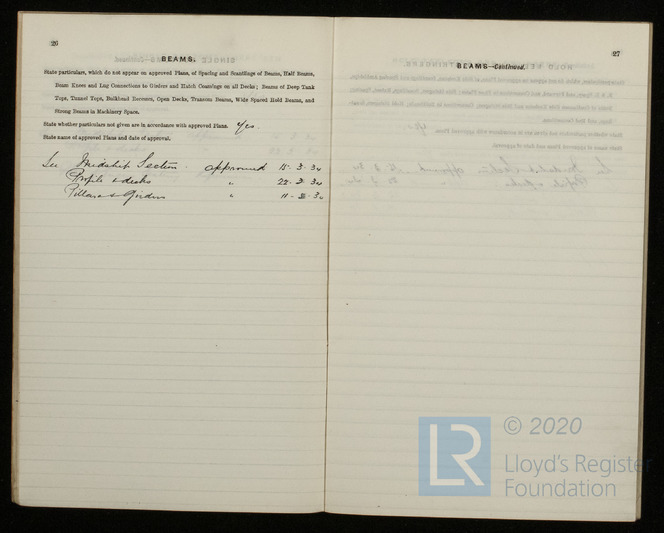 26
BEAMS.
State particulars, which do not appear on approved Plans, of Spacing and Scantlings of Beams, Half Beams,
Beam Knees and Lug Connections to Girders and Hatch Coamings on all Decks; Beams of Deep Tank
Tops, Tunnel Tops, Bulkhead Recesses, Open Decks, Transom Beams, Wide Spaced Hold Beams, and
Strong Beams in Machinery Space.
State whether particulars not given are in accordance with approved Plans. Yes.
State name of approved Plans and date of approval.
See Midship Section. approved 15.3.30
Profile & decks " 22.3.30
Pillars & Girders " 11-3.30
27
BEAMS—Continued.
LR
© 2020
Lloyd's Register
Foundation